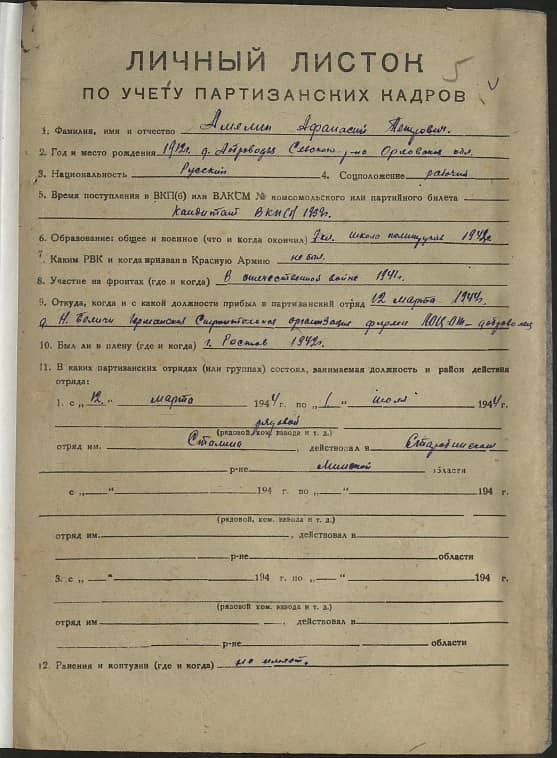 5
ЛИЧНЫЙ ЛИСТОК
ПО УЧЕТУ ПАРТИЗАНСКИХ КАДРОВ
1. Фамилия, имя и отчество Амелин Афанасий Петрович.
2. Год и место рождения 1912г. д. Доброводье Севского р-на Орловской обл.
3. Национальность Русский 4. Соцположение рабочий
5. Время поступления в ВКП(б) или ВЛКСМ № комсомольского или партийного билета
Кандидат ВКП(б) 1939г.
6. Образование: общее и военное (что и когда окончил) 7 кл. школа политруков 1942г
7. Каким РВК и когда призван в Красную Армию не был.
8. Участие на фронтах (где и когда) В отечественной войне 1941г.
9. Откуда, когда и с какой должности прибыл в партизанский отряд 12 марта 1944г.
д. Н. Беличи Германская Строительная организация доброволец
10. Был ли в плену (где и когда) г. Ростов 1942г.
11. В каких партизанских отрядах (или группах) состоял, занимаемая должность и район действия
отряда:
1. с „12" марта 1944 г. по „1" июля 1944 г.
рядовой
(рядовой, ком. взвода и т. д.)
отряд им. Сталина, действовал в Старобинском
р-не Минской области
с „ " 194 г. по „ " 194 г.
(рядовой, ком. взвода и т. д.)
отряд им. , действовал в
р-не области
3. с „ " 194 г. по „ " 194 г.
(рядовой ком. взвода и т. д.)
отряд им , действовал в
р-не области
12. Ранения и контузии (где и когда) не имеет.